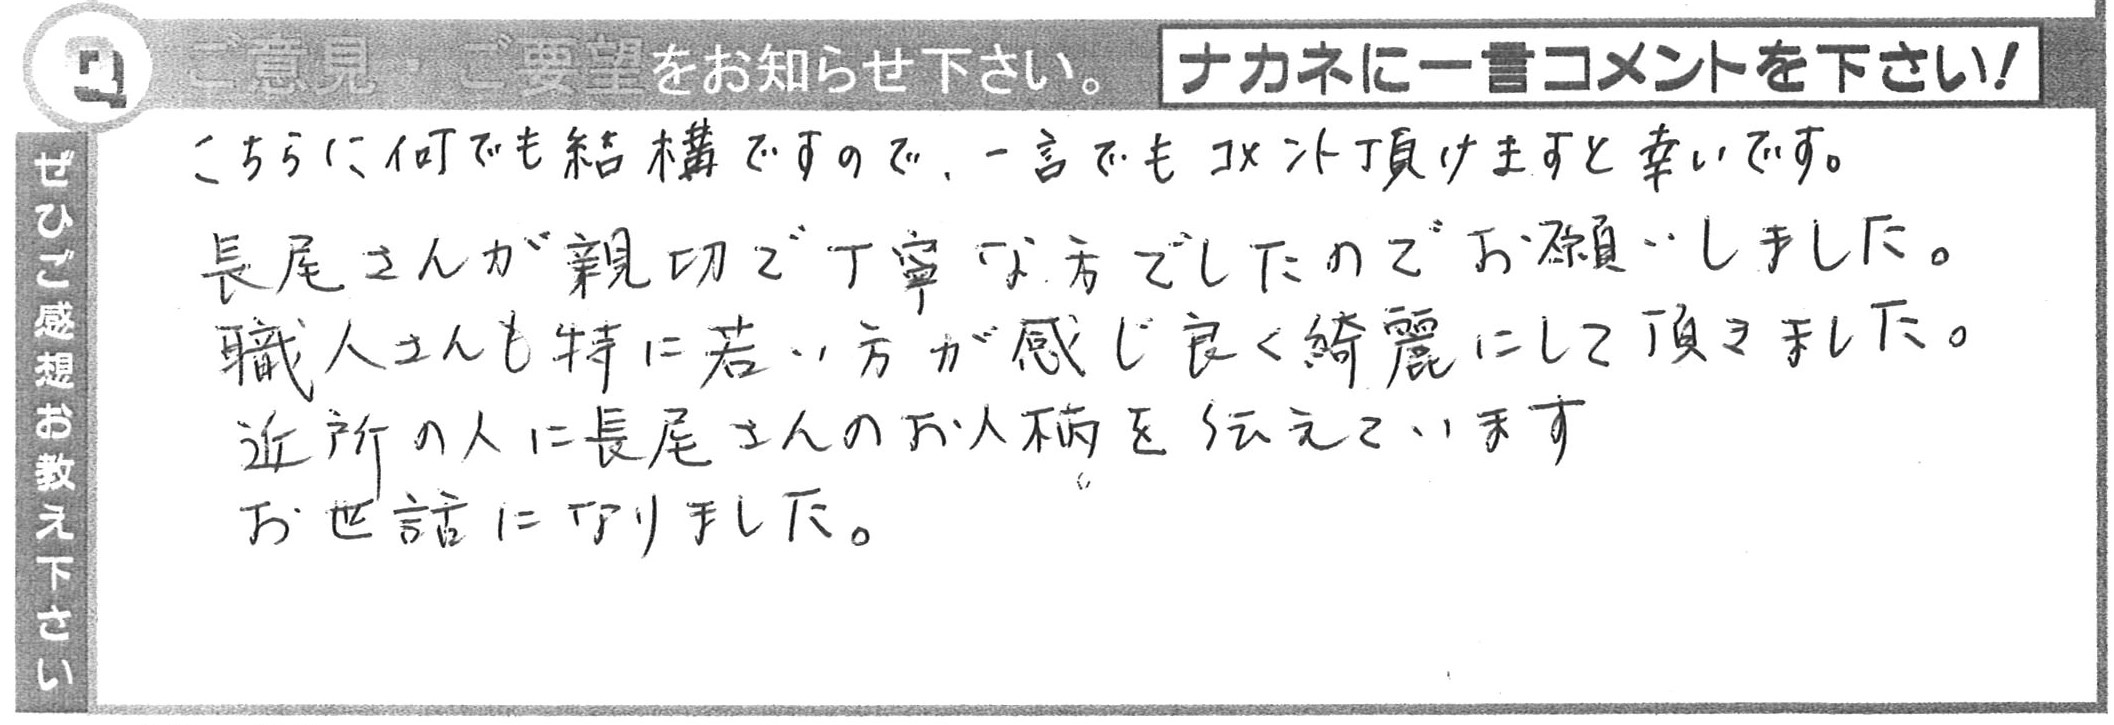 Q ご意見・ご要望をお知らせ下さい。 ナカネに一言コメントを下さい!
ぜひご感想お教え下さい
こちらに何でも結構ですので、一言でもコメント頂けますと幸いです。
長尾さんが親切で丁寧な方でしたのでお願いしました。
職人さんも特に若い方が感じ良く綺麗にして頂きました。
近所の人に長尾さんのお人柄を伝えています
お世話になりました。